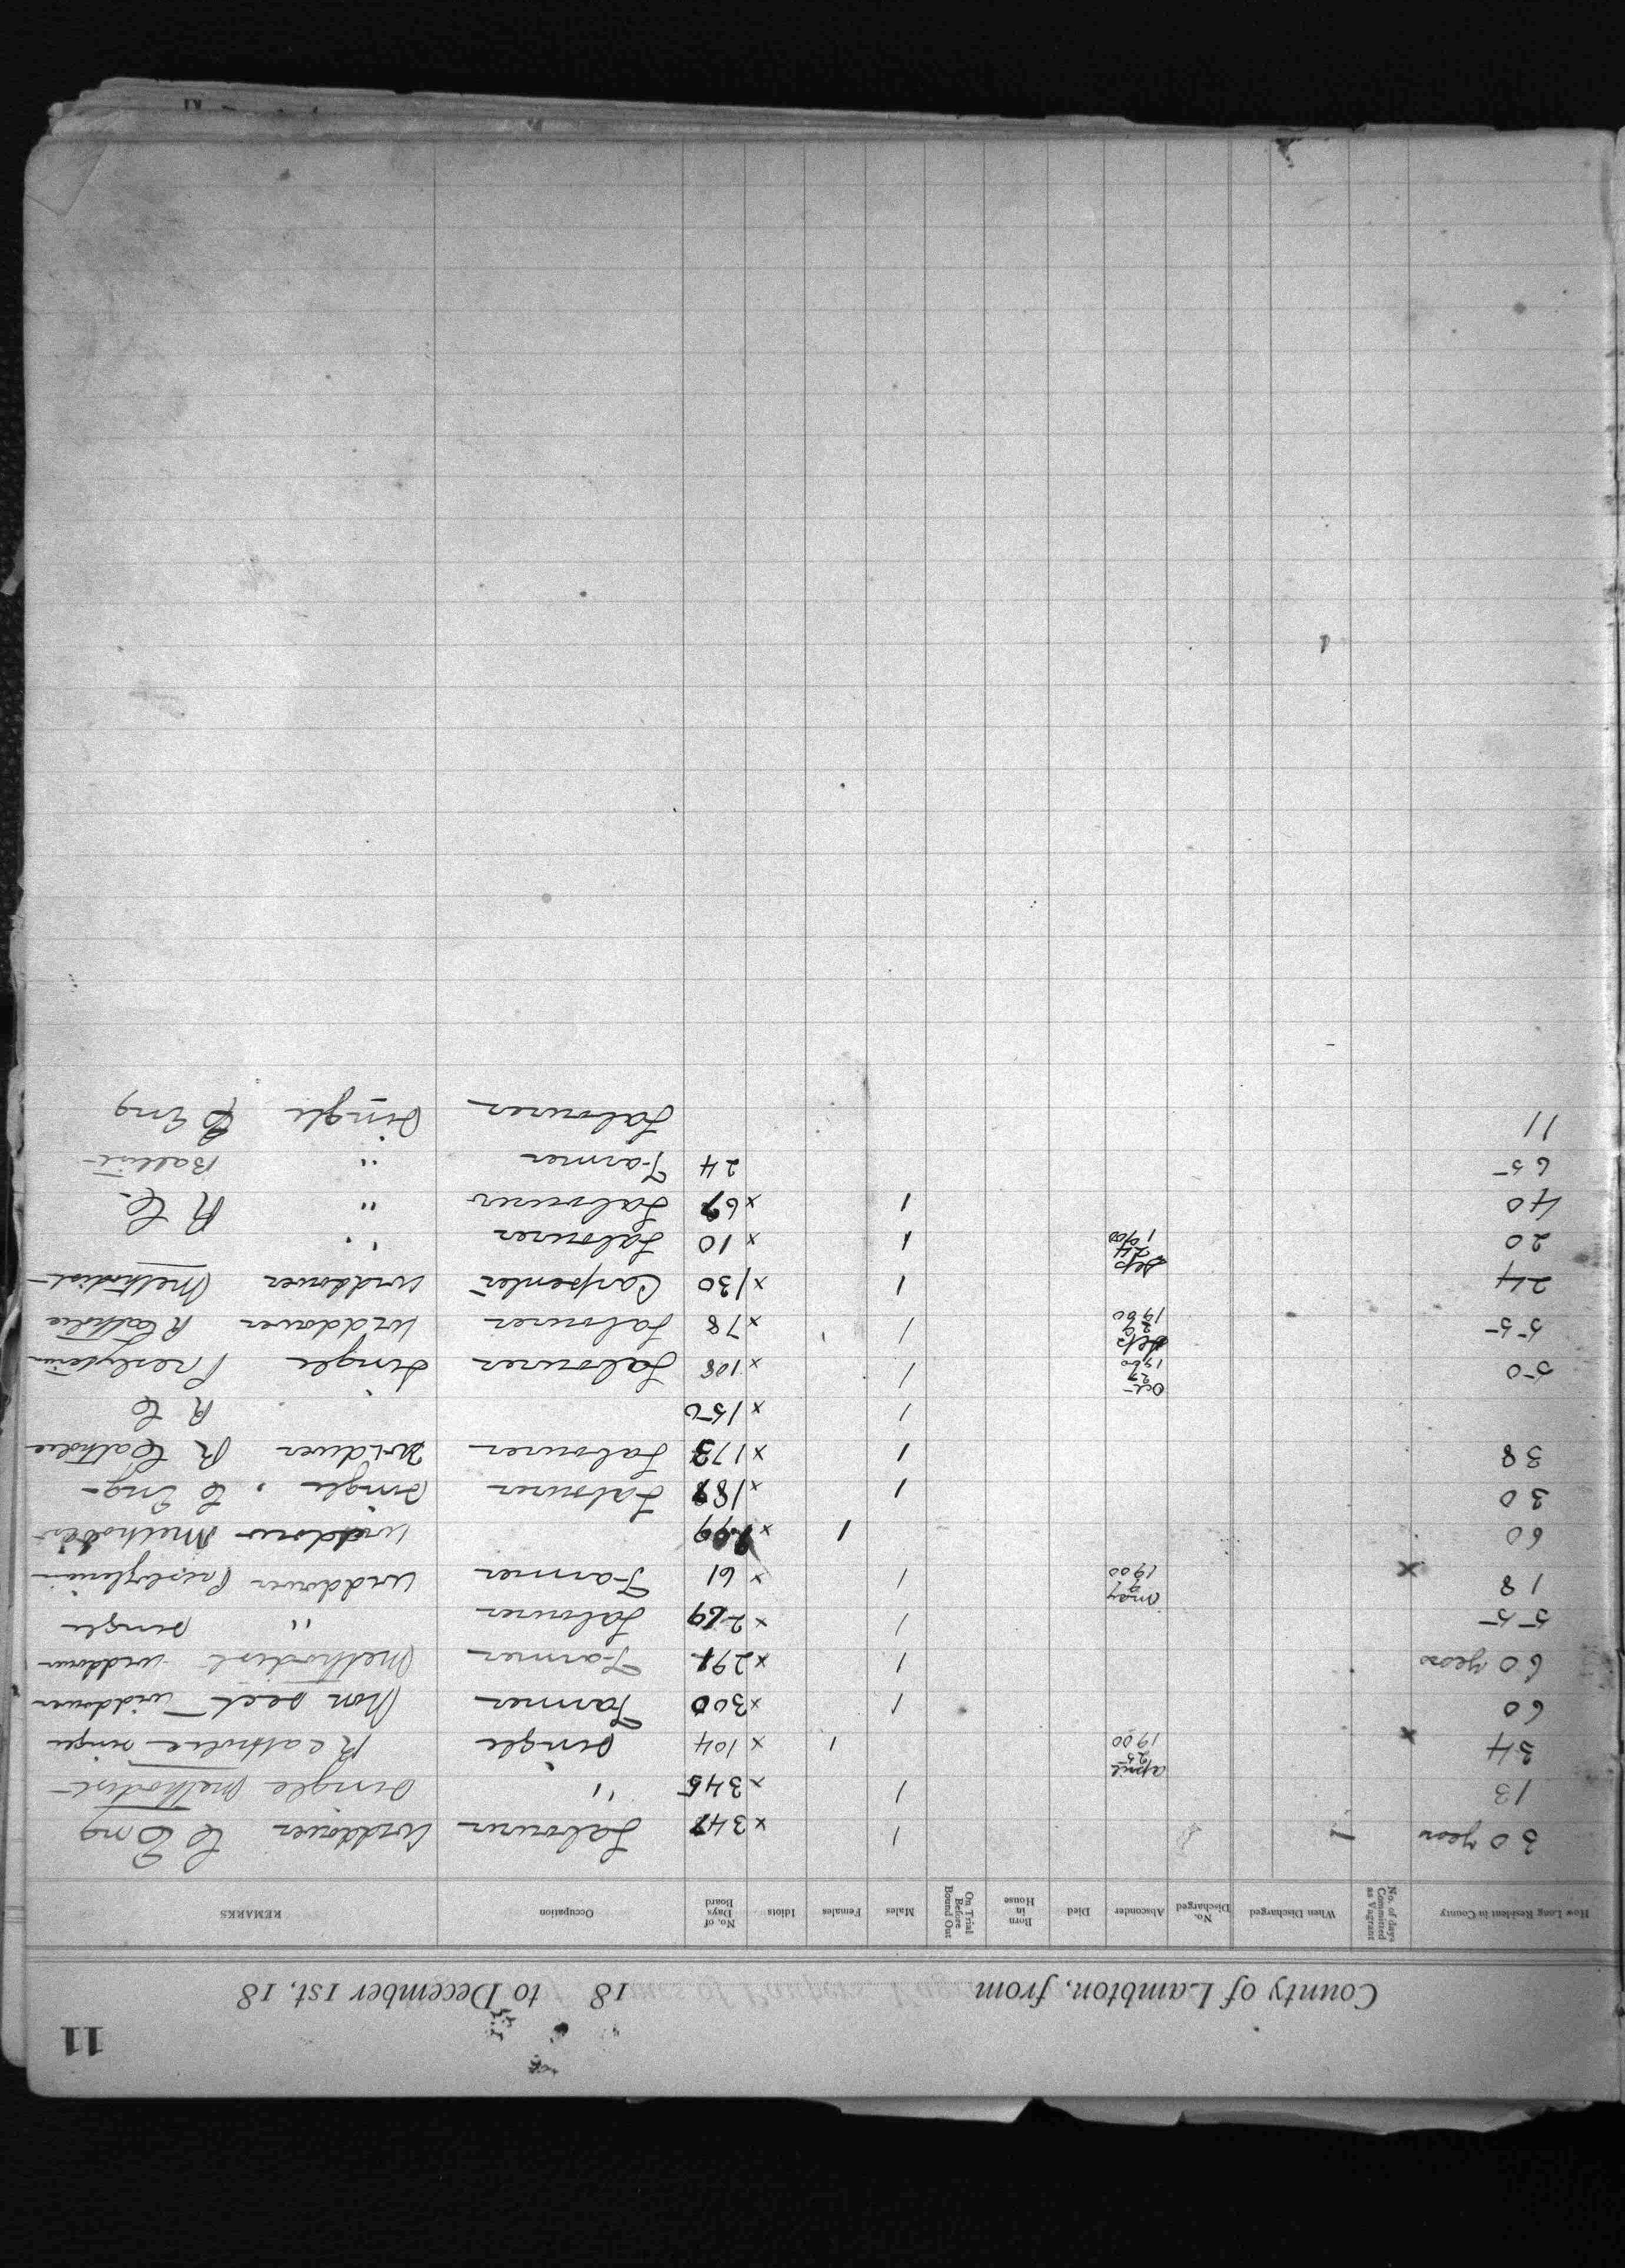 11
County of Lambton, from 18 to December 1st, 18
How Long Resident in County No. of days Committed as Vagrant When Discharged No. Discharged Absconder Died Born in House On Trial Before Bound Out Males Females Idiots No. of Days Board Occupation REMARKS
30 years 1 x 347 Labourer Widower C Eng
13 1 x 345 " Single Methodist
34 x april 25 1900 1 x 104 Single R Catholic single
60 1 x 300 Farmer Non sect widower
60 years 1 x 291 Farmer Methodist widower
55 1 x 269 Labourer " single
18 x may 9 1900 1 x 61 Farmer widower Presbyterian
60 1 x widow Methodist
30 1 x 188 Labourer Single C Eng
38 1 x 173 Labourer Widower R Catholic
1 x 150 R C
50 Oct 27 1900 1 x 108 Labourer Single Presbyterian
55 Sep 29 1900 1 x 78 Labourer widower R Catholic
24 1 x 130 Carpenter widower Methodist
20 Sep 24 1900 1 x 10 Labourer "
40 1 x 67 Labourer " R C
65 24 Farmer " Babtist
11 Labourer Single C Eng